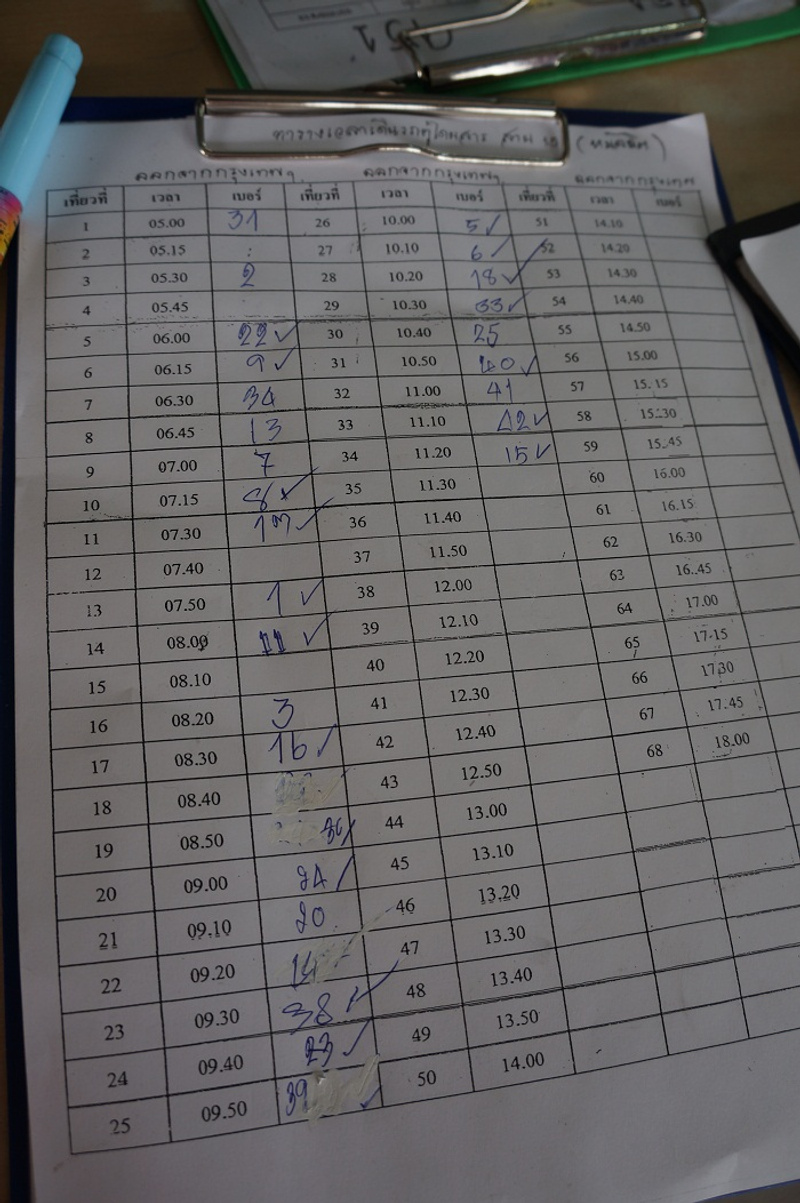 951
ตารางเวลาเดินรถตู้โดยสาร สาย
ออกจากกรุงเทพฯ ออกจากกรุงเทพฯ ออกจากกรุงเทพ
เที่ยวที่ เวลา เบอร์ เที่ยวที่ เวลา เบอร์ เที่ยวที่ เวลา เบอร์
1 05.00 31 26 10.00 5 ✓ 51 14.10
2 05.15 27 10.10 6 ✓ 52 14.20
3 05.30 2 28 10.20 18 ✓ 53 14.30
4 05.45 29 10.30 33 ✓ 54 14.40
5 06.00 22 ✓ 30 10.40 25 55 14.50
6 06.15 9 ✓ 31 10.50 40 ✓ 56 15.00
7 06.30 34 32 11.00 41 57 15.15
8 06.45 13 33 11.10 42 ✓ 58 15.30
9 07.00 7 34 11.20 15 ✓ 59 15.45
10 07.15 8 ✓ 35 11.30 60 16.00
11 07.30 17 ✓ 36 11.40 61 16.15
12 07.40 37 11.50 62 16.30
13 07.50 1 ✓ 38 12.00 63 16.45
14 08.00 11 ✓ 39 12.10 64 17.00
15 08.10 40 12.20 65 17.15
16 08.20 3 41 12.30 66 17.30
17 08.30 16 ✓ 42 12.40 67 17.45
18 08.40 43 12.50 68 18.00
19 08.50 36 44 13.00
20 09.00 24 45 13.10
21 09.10 20 46 13.20
22 09.20 14 47 13.30
23 09.30 38 ✓ 48 13.40
24 09.40 23 ✓ 49 13.50
25 09.50 39 ✓ 50 14.00